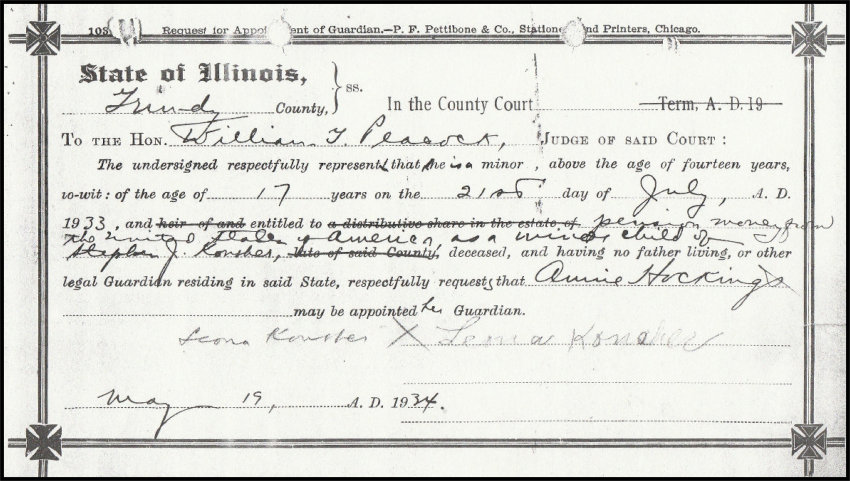 Request for Appointment of Guardian.—P. F. Pettibone & Co., Stationers and Printers, Chicago.
State of Illinois,
Grundy County, } ss. In the County Court Term, A. D. 19
TO THE HON. William J. Peacock, JUDGE OF SAID COURT:
The undersigned respectfully represents that she is a minor, above the age of fourteen years,
to-wit: of the age of 17 years on the 21st day of July, A. D.
1933, and heir of and entitled to a distributive share in the estate of pension money from
the United States of America as a minor child of
Stephen J. late of said County, deceased, and having no father living, or other
legal Guardian residing in said State, respectfully requests that Annie Hockings
may be appointed her Guardian.
Leona X Leona
May 19, A. D. 1934.